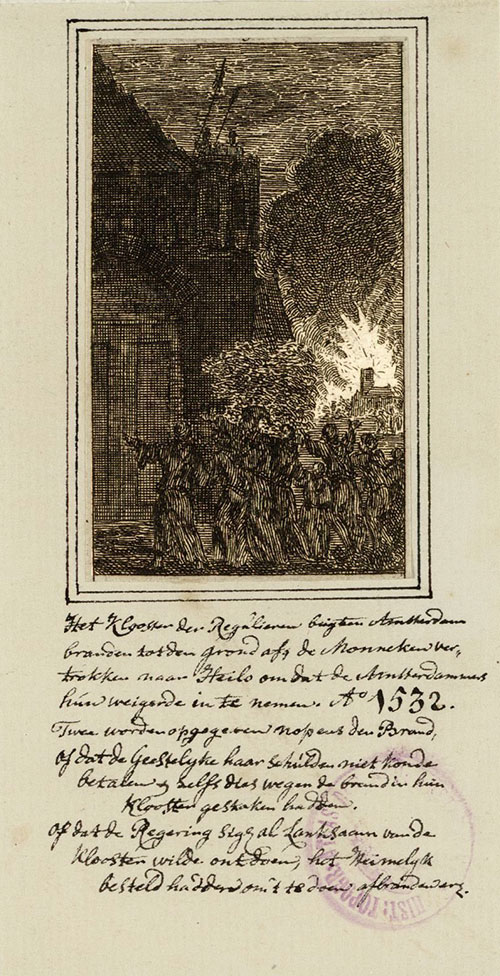 Het Klooster der Regulieren buÿten Amsterdam
branden tot den grond af, & de Monneken ver,,
trokken naar Heilo om dat de Amsterdammers
hun weigerde in te nemen. Aº 1532.
Twee worden opgegeven nopens den Brand,
of dat de Geestelyke haar schulden niet konde
betalen & zelfs dies wegen de brand in hun
Klooster gestoken hadden.
of dat de Regering sig al Lanksaam van de
Klooster wilde ontdoen, het Heimelyk
besteld hadden om 't te doen afbranden
HIST: TOPOGR